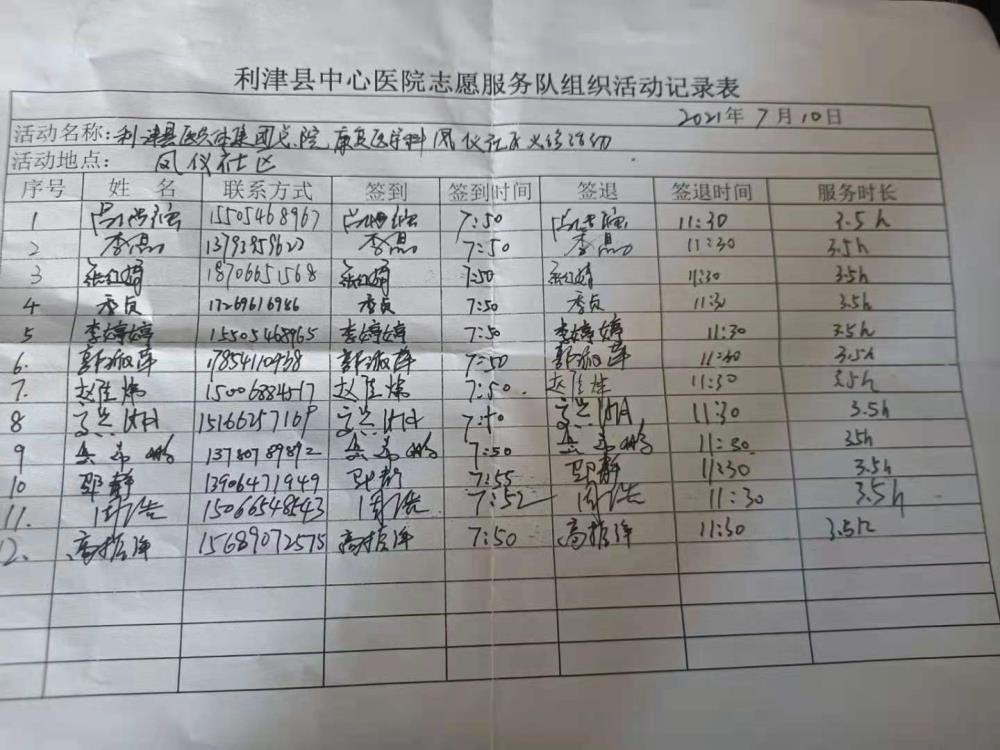 利津县中心医院志愿服务队组织活动记录表
2021年 7月10日
活动名称: 利津县医共体集团总院 康复医学科 凤仪社区义诊活动
活动地点: 凤仪社区
序号 姓 名 联系方式 签到 签到时间 签退 签退时间 服务时长
1 15505468967 7:50 11:30 3.5h
2 李勇 李勇 7:50 李勇 11:30 3.5h
3 18706651568 7:50 11:30 3.5h
4 季贞 17269616986 季贞 7:50 季贞 11:30 3.5h
5 李婷婷 15505468965 李婷婷 7:50 李婷婷 11:30 3.5h
6. 17854110938 7:50 11:30 3.5h
7. 赵佳炜 15006884517 赵佳炜 7:50 赵佳炜 11:30 3.5h
8 15166257169 11:30 3.5h
9 7:50 11:30 3.5h
10 邓静 13906471949 邓静 7:55 邓静 11:30 3.5h
11. 周浩 15066548543 周浩 7:52 周浩 11:30 3.5h
12. 高振洋 15689072575 高振洋 7:50 高振洋 11:30 3.5h